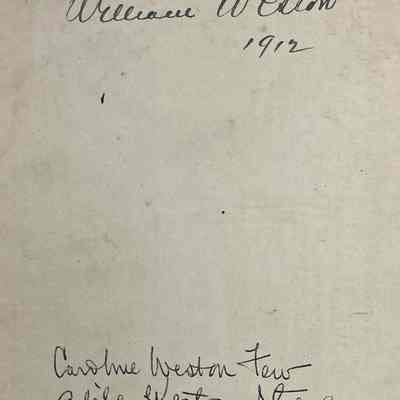 William Weston
1912
Caroline Weston Few